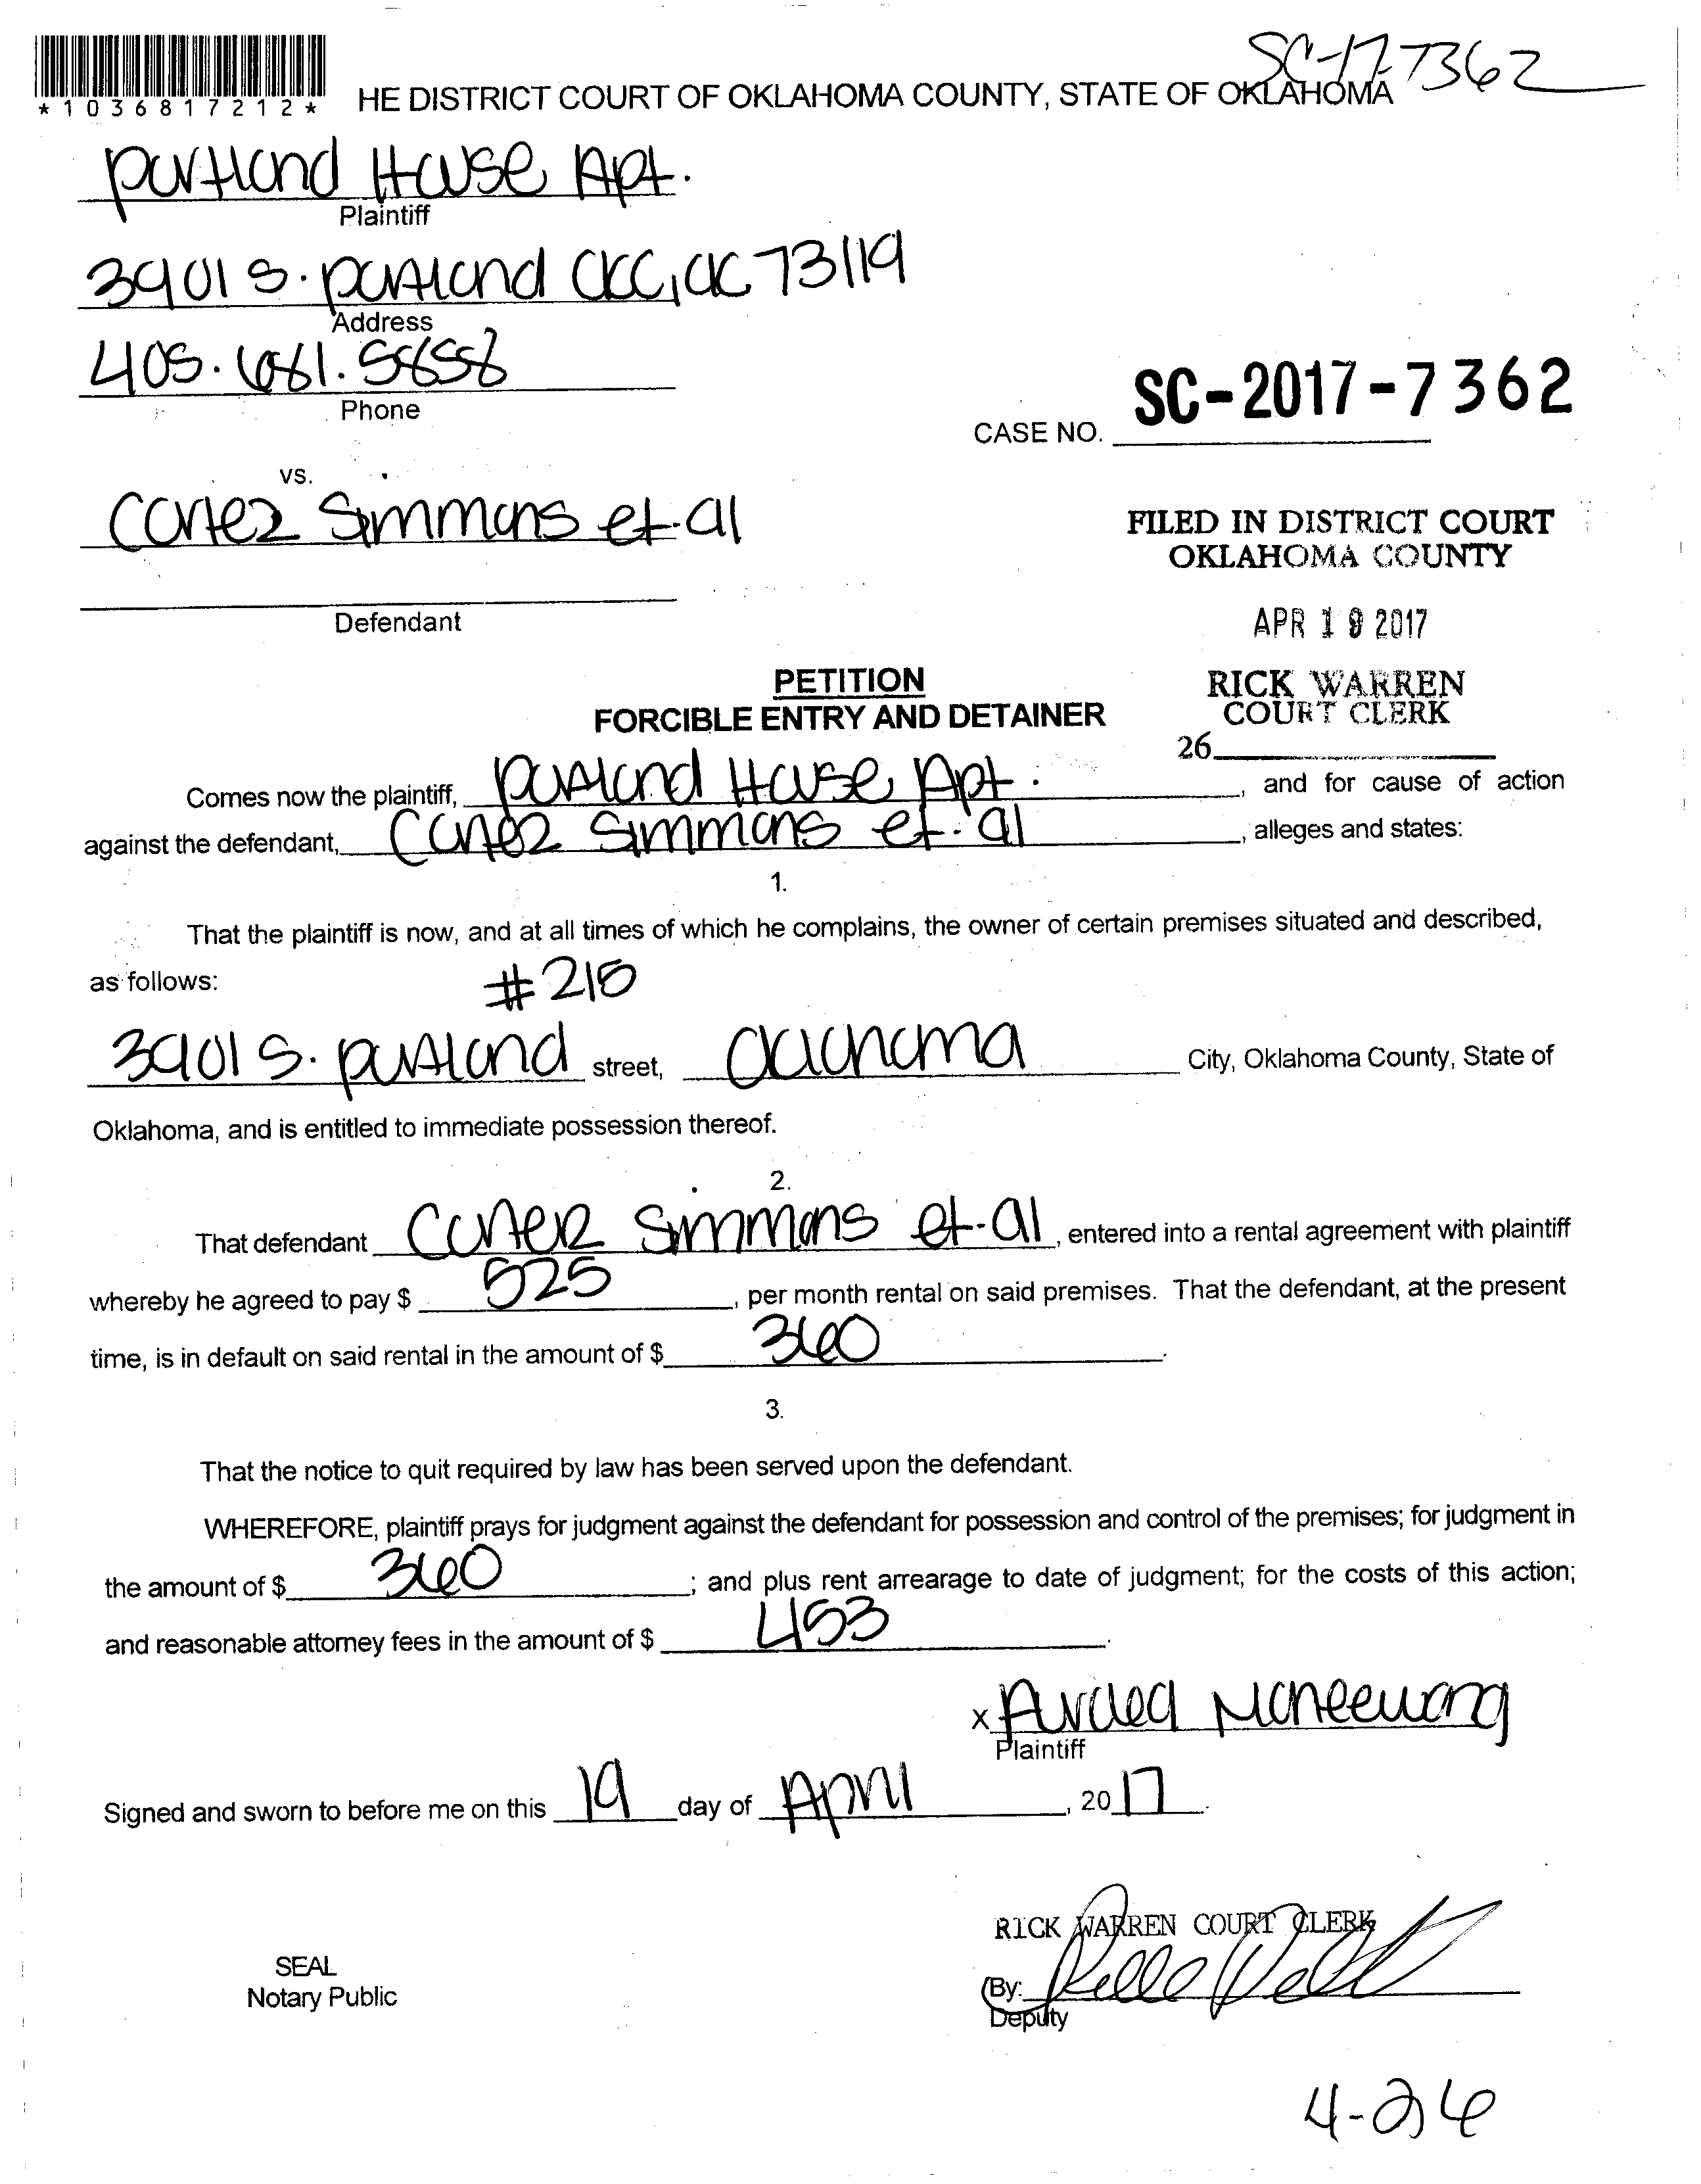 SC-17-7362
*1036817212*
HE DISTRICT COURT OF OKLAHOMA COUNTY, STATE OF OKLAHOMA
Portland House Apt.
Plaintiff
3901 S. Portland OKC, OK 73119
Address
405.681.5858
Phone
CASE NO. SC-2017-7362
vs.
Cortez Simmons et-al
FILED IN DISTRICT COURT
OKLAHOMA COUNTY
Defendant
APR 19 2017
PETITION
FORCIBLE ENTRY AND DETAINER
RICK WARREN
COURT CLERK
26
Comes now the plaintiff, Portland House Apt. , and for cause of action
against the defendant, Cortez Simmons et-al , alleges and states:
1.
That the plaintiff is now, and at all times of which he complains, the owner of certain premises situated and described,
as follows: #215
3901 S. Portland street, Oklahoma City, Oklahoma County, State of
Oklahoma, and is entitled to immediate possession thereof.
2.
That defendant Cortez Simmons et-al , entered into a rental agreement with plaintiff
whereby he agreed to pay $ 525 , per month rental on said premises. That the defendant, at the present
time, is in default on said rental in the amount of $ 360 .
3.
That the notice to quit required by law has been served upon the defendant.
WHEREFORE, plaintiff prays for judgment against the defendant for possession and control of the premises; for judgment in
the amount of $ 360 ; and plus rent arrearage to date of judgment; for the costs of this action;
and reasonable attorney fees in the amount of $ 453 .
x
Plaintiff
Signed and sworn to before me on this 19 day of April , 20 17 .
RICK WARREN COURT CLERK
SEAL
Notary Public
By:
Deputy
4-26